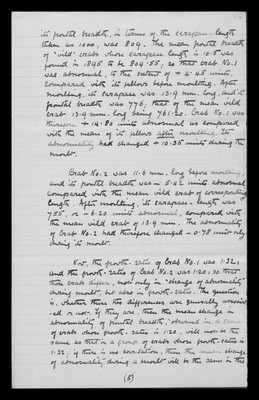 its frontal breadth, in terms of the carapace-length
taken as 1000, was 809. The mean frontal breadth
of "wild" crabs whose carapace length is 10.5 was
found in 1895 to be 804.55, so that crab No.1
was abnormal, to the extent of + 4.45 units,
compared with its fellows before moulting. After
moulting, its carapace was 13.9 mm. long, and its
frontal breadth was 776, that of the mean wild
crab 13.9 mm. long being 761.20. Crab No.1 was
therefore + 14.80 units abnormal as compared
with the mean of its fellows after moulting. Its
abnormality had changed + 10.35 units during the
moult.
Crab No.2 was 11.6 mm. long before moulting,
and its frontal breadth was - 5.42 units abnormal
compared with the mean wild crab of corresponding
length. After moulting, its carapace-length was
755, or - 6.20 units abnormal, compared with
the mean wild crab of 13.9 mm. The abnormality
of Crab No.2 had therefore changed - 0.78 units only
during its moult.
Now, the growth-ratio of Crab No.1 was 1.32;
and the growth-ratio of Crab No.2 was 1.20; so that
these crabs differ, not only in "change of abnormality
during moult," but also in growth-ratio. The question
is, whether these two differences are generally associat
-ed or not. If they are, then the mean change in
abnormality of frontal breadth, observed in a group
of crabs whose growth-ratio is 1.20, will not be the
same as that in a group of crabs whose growth-ratio is
1.32; if there is no correlation, then the mean change
of abnormality during a moult will be the same in the
(5)